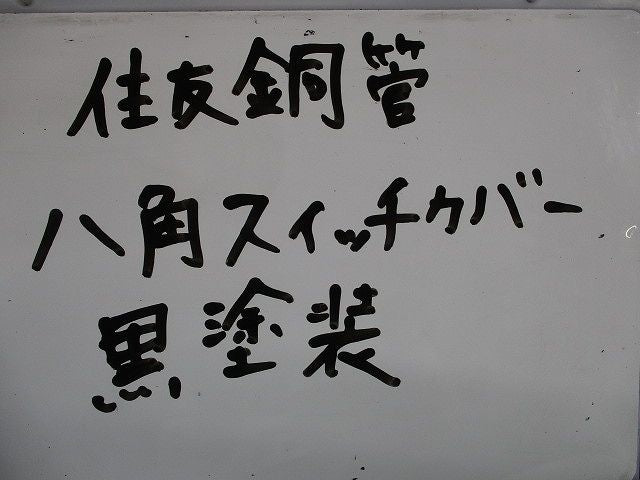 住友銅管
八角スイッチカバー
黒塗装